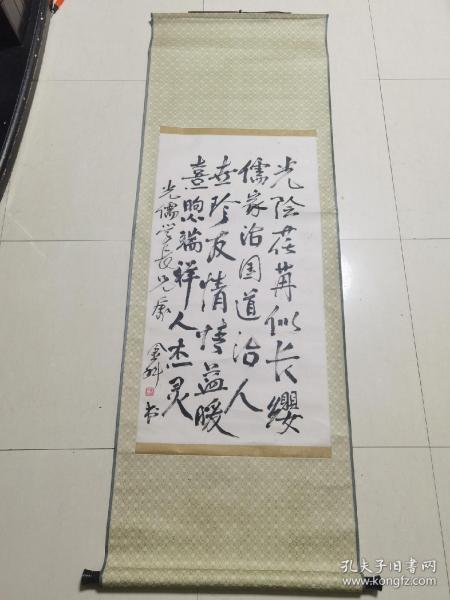 光阴荏苒似长缨
儒家治国道治人
世珍友情情益暖
熹煦瑞祥人杰灵
光儒学长兄属
金科书
孔夫子旧书网
www.kongfz.com